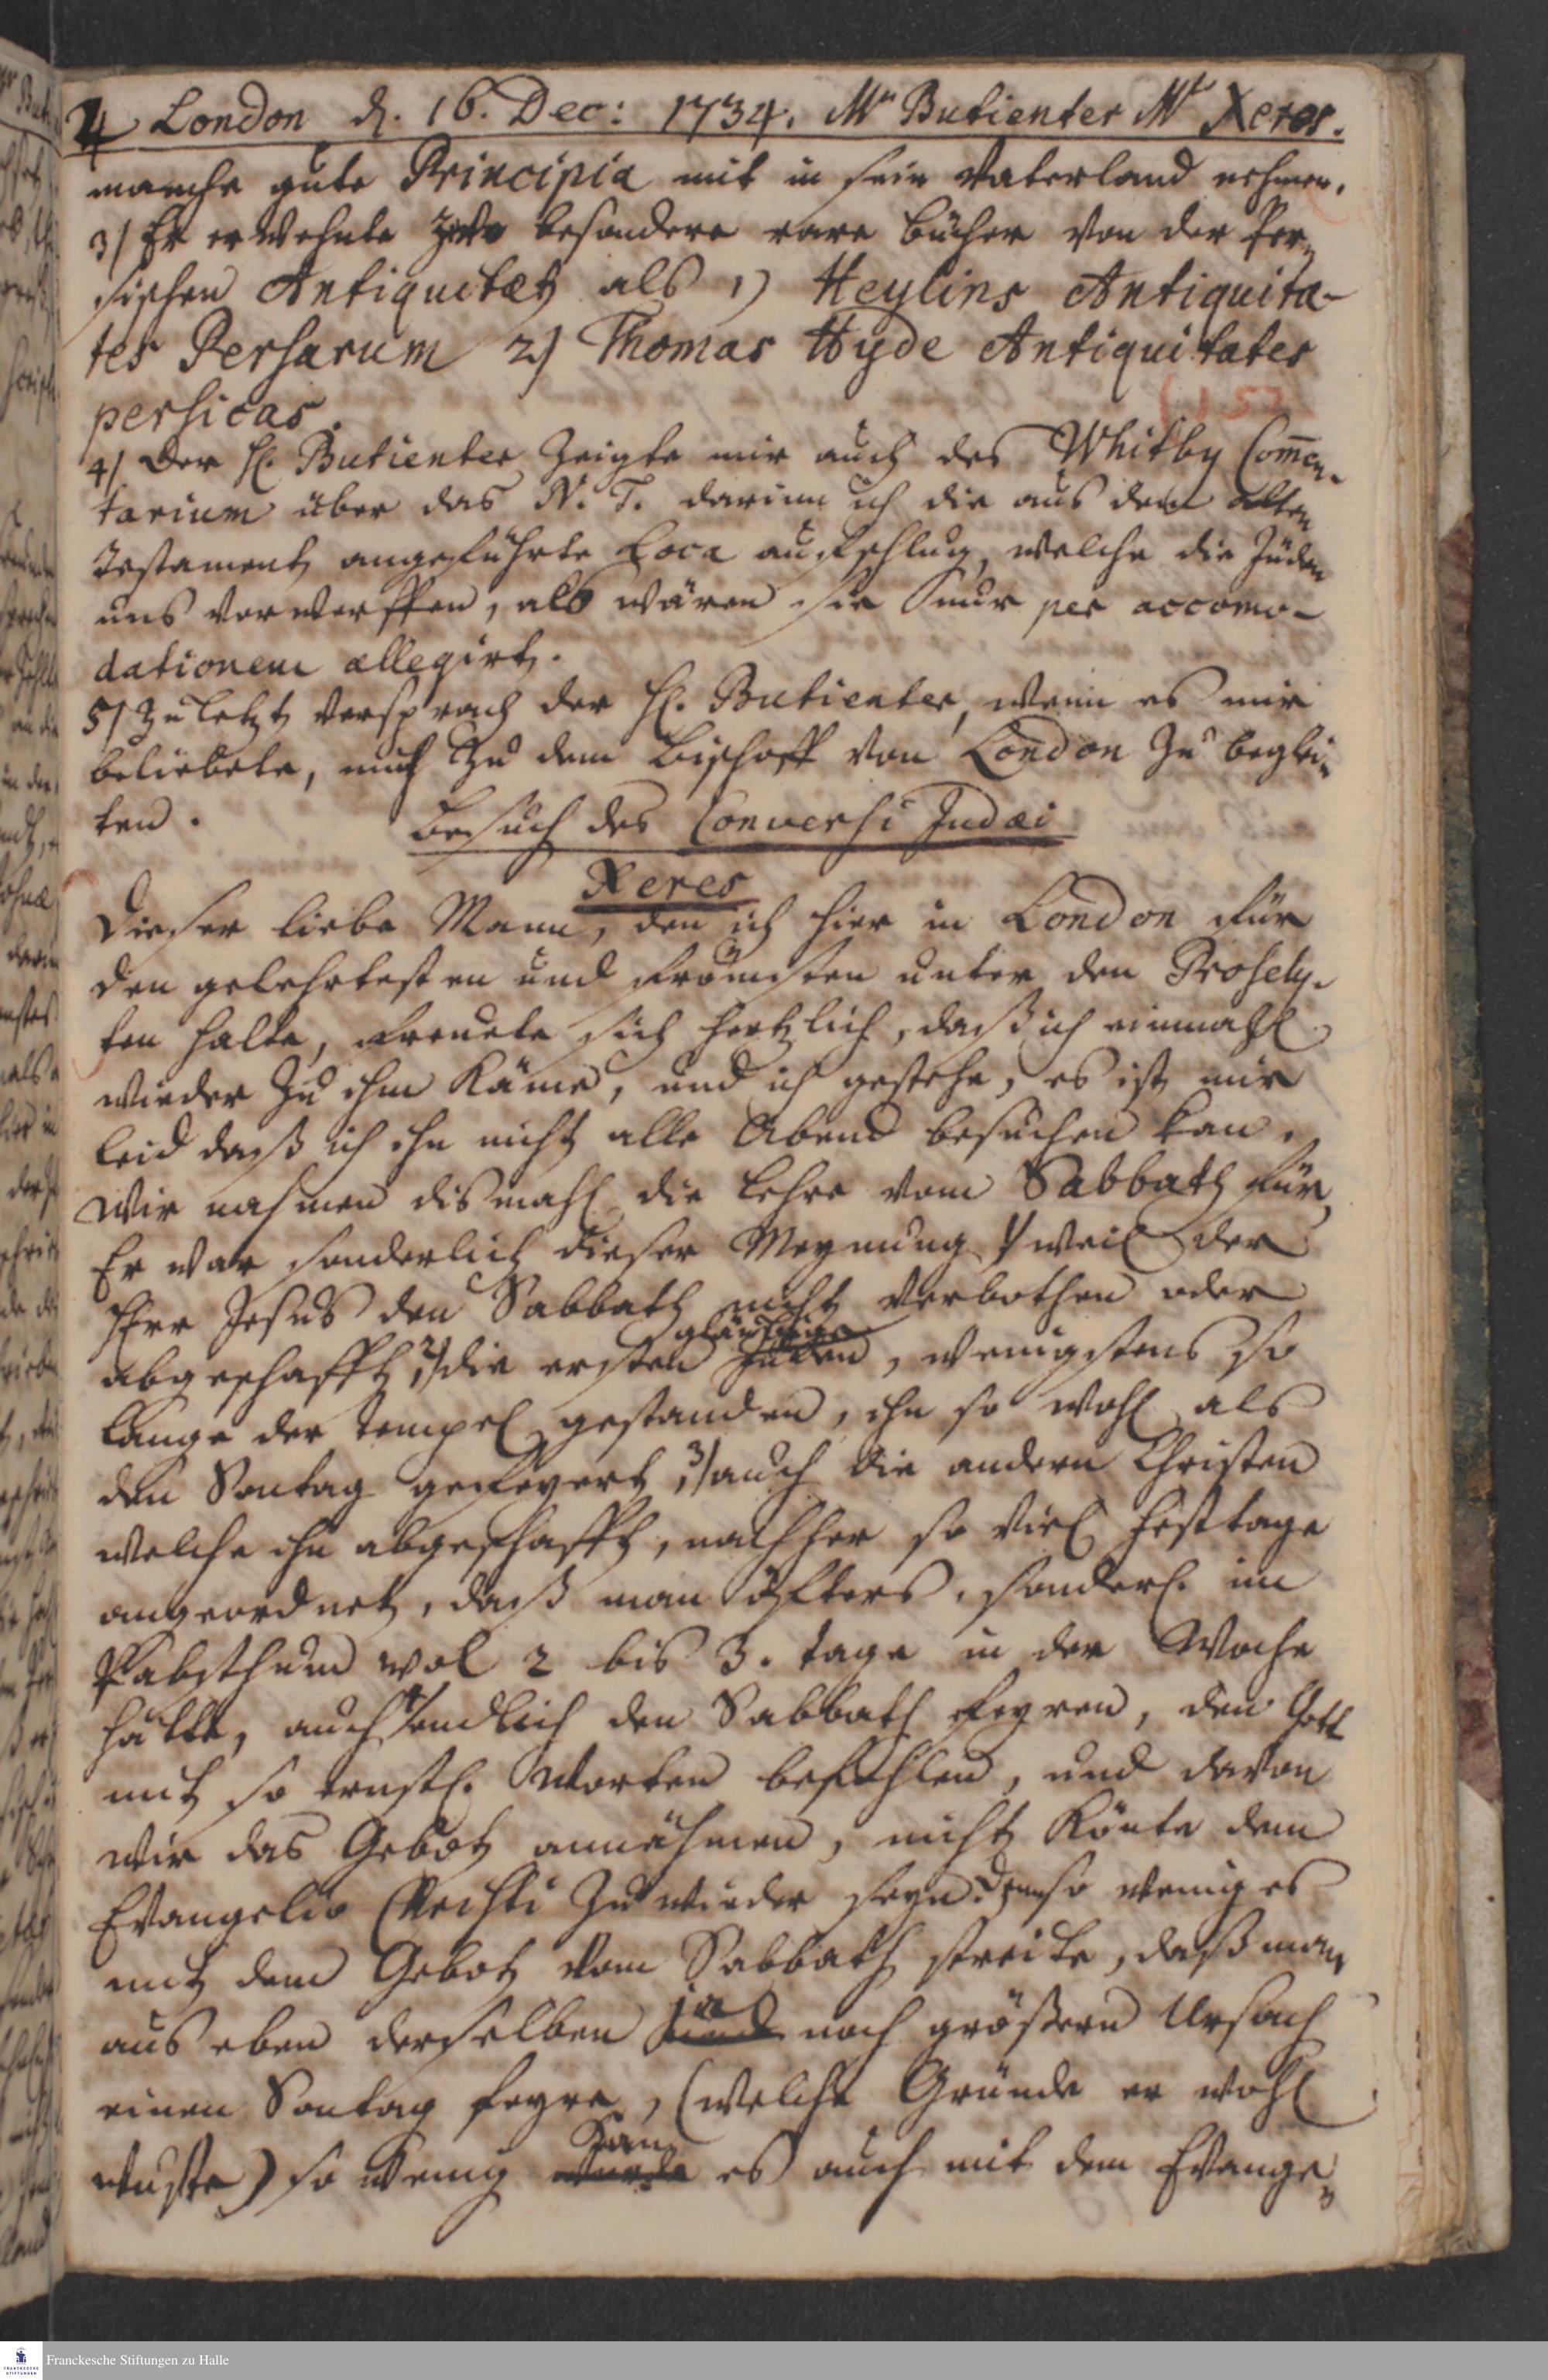 4 London d. 16. Dec: 1734. Mr Butienter Mr Xeres.
manche gute Principia mit in sein Vaterland nehmen.
3/ Er erwehnte zwo besondere rare Bücher von der Per-
sischen Antiquitæt als 1) Heylins Antiquita-
tes Persarum 2) Thomas Hyde Antiquitates
persicas.
4/ Der H. Butienter zeigte mir auch des Whitby Com̅en-
tarium über das N. T. darinn ich die aus dem alten
Testament angeführte Loca aufschlug, welche die Juden
uns vorwerffen, als wären sie nur per accomo-
dationem allegirt.
5/ Zuletzt versprach der H. Butienter, wenn es mir
beliebete, mich zu dem Bischoff von London zu beglei-
ten.
Besuch des Conversi Judæi
Xeres
Dieser liebe Mann, den ich hier in London für
den gelehrtesten und frömsten unter den Prosely-
ten halte, freuete sich hertzlich, daß ich einmahl
wieder zu ihm käme, und ich gestehe, es ist mir
leid daß ich ihn nicht alle Abend besuchen kan.
Wir nahmen dismahl die Lehre vom Sabbath für,
Er war sonderlich dieser Meynung 1/ weil der
HErr Jesus den Sabbath nicht verbothen oder
abgeschafft, 2/ die ersten gläubige Juden, wenigstens so
lange der Tempel gestanden, ihn so wohl als
den Sontag gefeyert, 3/ auch die andern Christen
welche ihn abgeschafft, nachher so viel Festtage
angeordnet, daß man öfters, sonderl. im
Pabstthum wol 2 bis 3. Tage in der Woche
hätte, auch 4/ endlich den Sabbath feyren, den Gott
mit so ernstl. Worten befohlen, und davon
wir das Gebot annähmen, nicht könte dem
Evangelio Christi zuwieder seyn. Denn so wenig es
mit dem Gebot vom Sabbath streite, daß man
aus eben derselben ja noch größern Ursach
einen Sontag feyre, (welche Gründe er wohl
wuste) so wenig kan es auch mit dem Evange-
Franckesche Stiftungen zu Halle